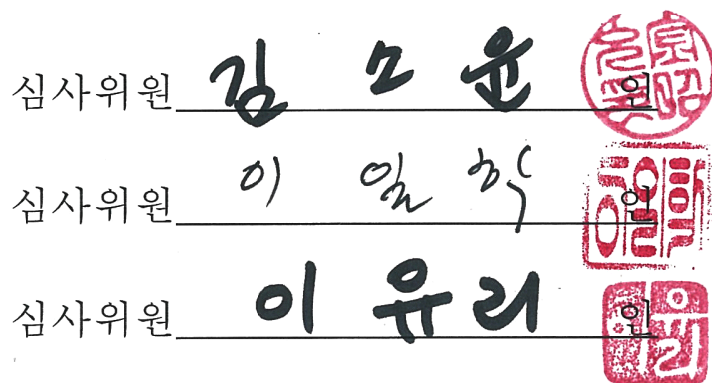 심사위원 김 소 윤 인
심사위원 이 일 학 인
심사위원 이 유 리 인